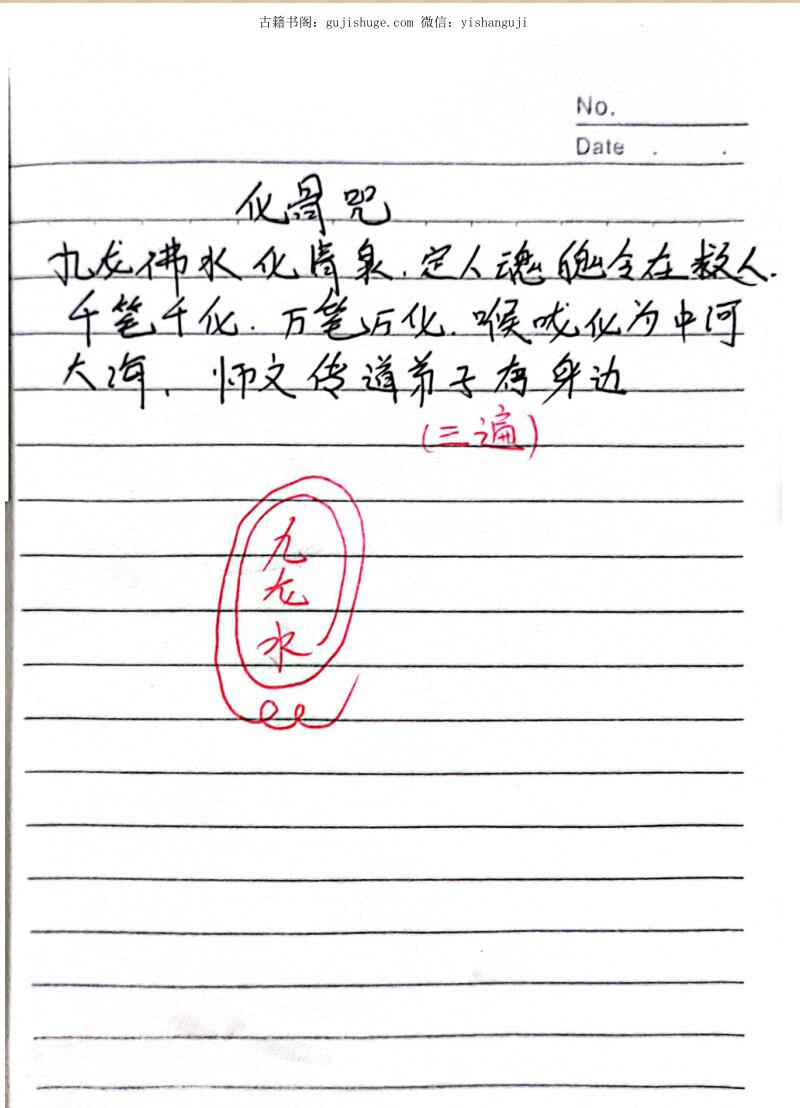 古籍书阁：gujishuge.com 微信：yishanguji
No.
Date . .
化骨咒
九龙佛水化清泉.定人魂魄令在数人.
千笔千化.万笔万化.喉咙化为中河
大海.师父传道弟子在身边
(三遍)
九
龙
水